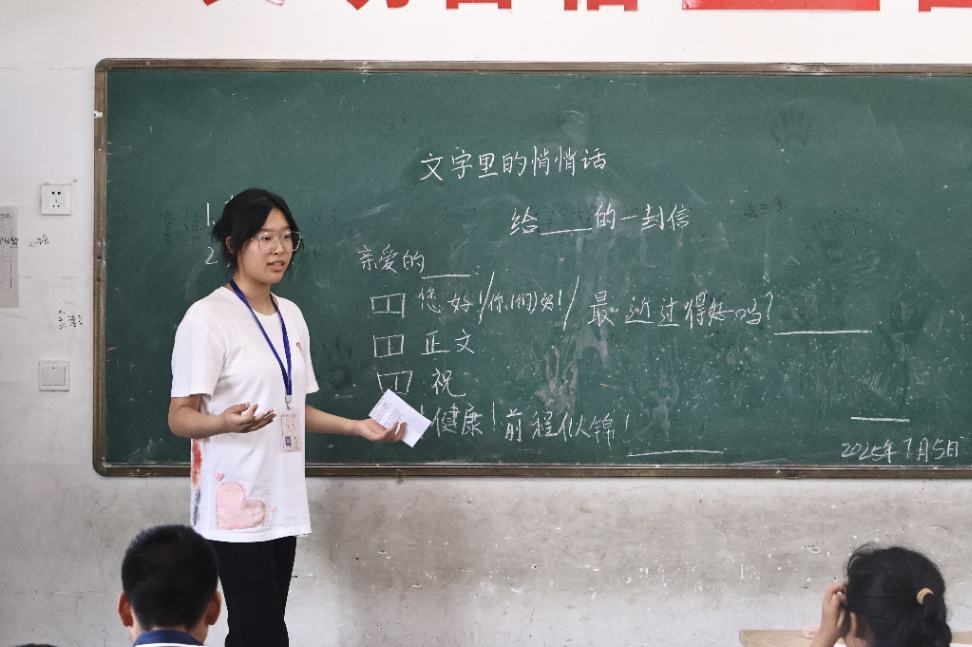 文字里的悄悄话
给____的一封信
1.
2.
亲爱的____:
您好!/你(们)好!/ 最近过得好吗?______
正文
祝
!健康!前程似锦!______
2025年7月5日